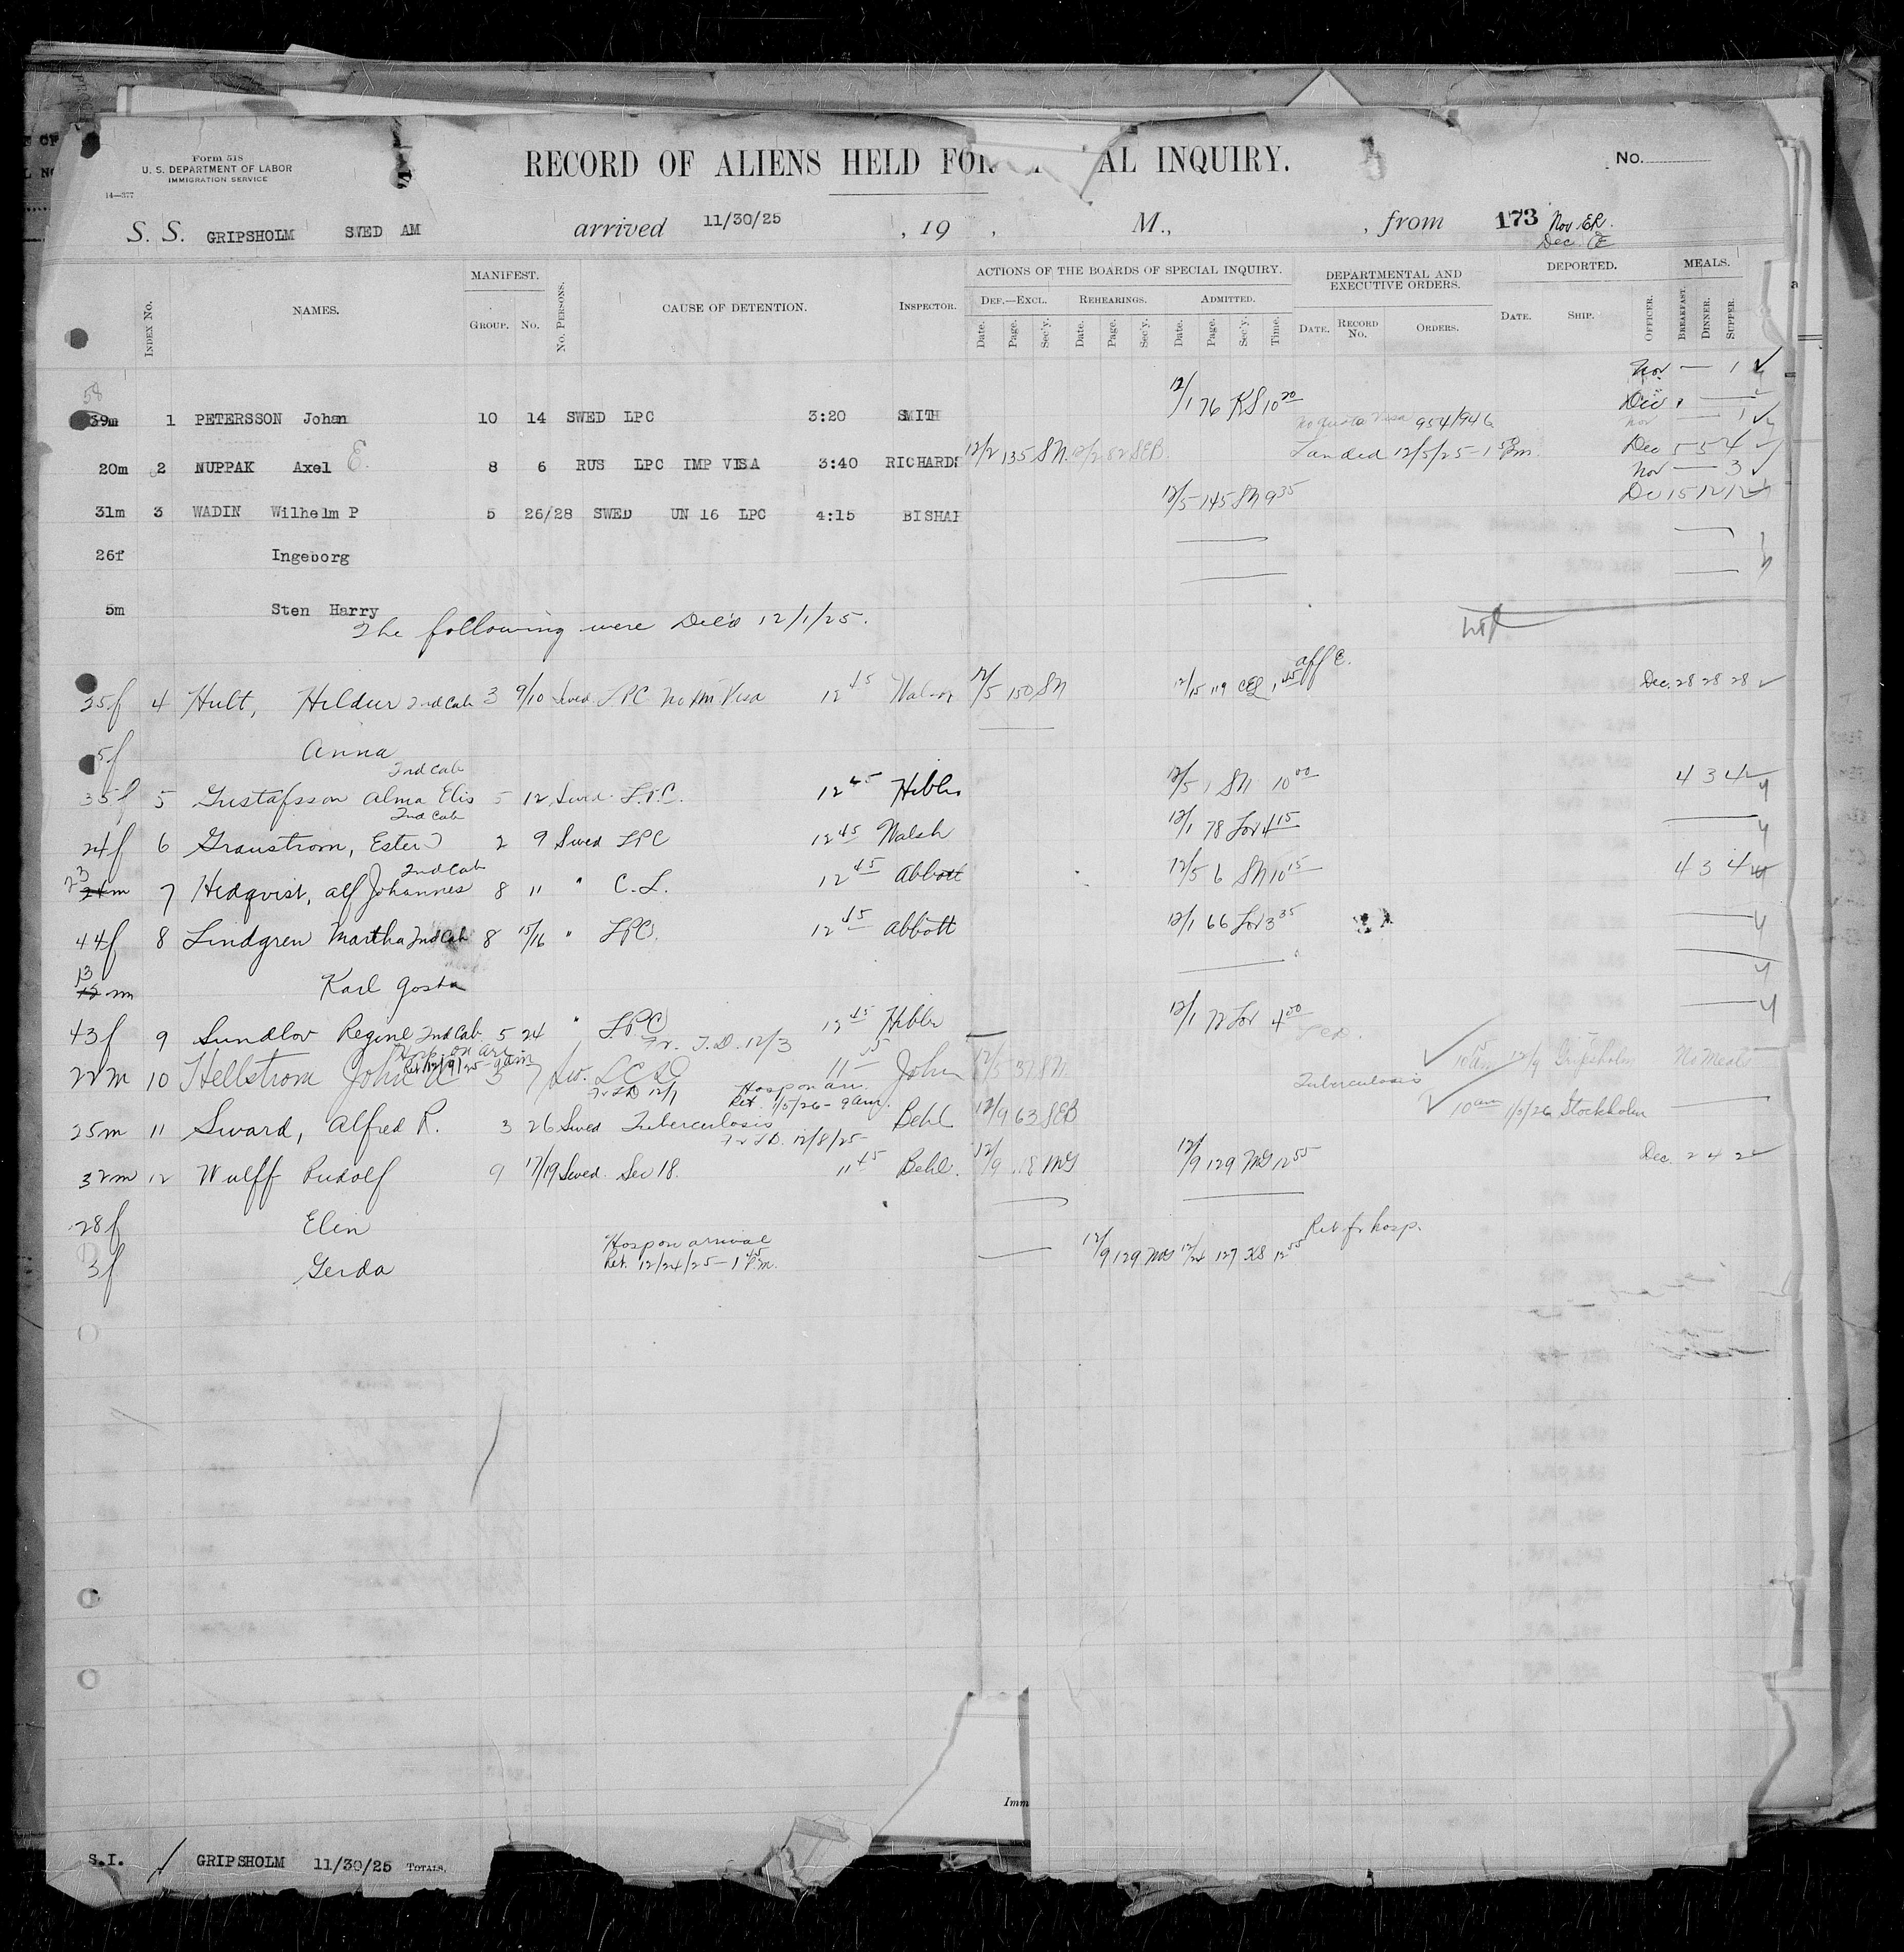 Form 518
U. S. DEPARTMENT OF LABOR
IMMIGRATION SERVICE
14—377
RECORD OF ALIENS HELD FOR AL INQUIRY.
No.
S. S. GRIPSHOLM SWED AM arrived 11/30/25 , 19 , M., , from 173 Nov. ER.
Dec.
INDEX No. NAMES. MANIFEST. GROUP. No. No. PERSONS. CAUSE OF DETENTION. INSPECTOR. ACTIONS OF THE BOARDS OF SPECIAL INQUIRY. DEPARTMENTAL AND EXECUTIVE ORDERS. DEPORTED. MEALS.
DEF.—EXCL. REHEARINGS. ADMITTED.
Date. Page. Sec'y. Date. Page. Sec'y. Date. Page. Sec'y. Time. DATE. RECORD No. ORDERS. DATE. SHIP. OFFICER. BREAKFAST. DINNER. SUPPER.
Nov — 1
58
39m 1 PETERSSON Johan 10 14 SWED LPC 3:20 SMITH 12/1 76 KS 10 20 Dec
954/946
20m 2 NUPPAK Axel E. 8 6 RUS LPC IMP VISA 3:40 RICHARDS 12/2 135 SN. Landed 12/5/25 - 1 Pm. Dec 5 5 4
Nov — 3
31m 3 WADIN Wilhelm P 5 26/28 SWED UN 16 LPC 4:15 BISHAP 12/5 145 SN 9 35 Dec 15 12 12
26f Ingeborg
5m Sten Harry
The following were Del'd 12/1/25.
aff C.
25f 4 Hult, Hildur 2nd Cab 3 9/10 Swed. LPC No Im Visa 12 45 12/5 150 SN 12/15 119 CEL 1 45 Dec. 28 28 28
5f Anna
2nd Cab
35f 5 Gustafsson Alma Elis 5 12 Swed. L.P.C. 12 45 Hibler 12/5 1 SN 10 00 4 3 4
2nd Cab
24f 6 Granstrom, Ester 2 9 Swed LPC 12 45 Walsh 12/1 78 Lov 4 15
2nd Cab
23 24m 7 Hedqvist, Alf Johannes 8 11 " C. L. 12 45 Abbott 12/5 6 SN 10 15 4 3 4
44f 8 Lindgren Martha 2nd Cab 8 15/16 " LPC. 12 45 Abbott 12/1 66 Lov 3 35
13
12 m Karl Gosta
43f 9 Sundlov Regine 2nd Cab 5 24 " LPC 12 45 Hibler 12/1 72 Lov 4 00
Tr. T.D. 12/3
Hosp. on arr.
Ret 12/9/25 - 9am
22m 10 Hellstrom John A 3 7 Sw. LCSD 11 55 John 12/5 37 SN 10 am 12/9 Gripsholm No Meals
Tr TD 12/7 Hosp on arr. Tuberculosis
Ret. 1/5/26 - 9am.
25m 11 Sward, Alfred R. 3 26 Swed Tuberculosis Behl 12/9 63 SEB 10 am Stockholm
Tr T D. 12/8/25
32m 12 Wulff Rudolf 9 17/19 Swed. Sec 18. 11 45 Behl. 12/9 18 MG 12/9 129 MG 12 55 Dec. 2 4 2
28f Elin
Hosp on arrival Ret fr hosp.
3f Gerda Ret. 12/24/25 - 1 45 P.m. 12/9 129 MG 12/24 127 KS 12 55
Imm
S.I. GRIPSHOLM 11/30/25 TOTALS.